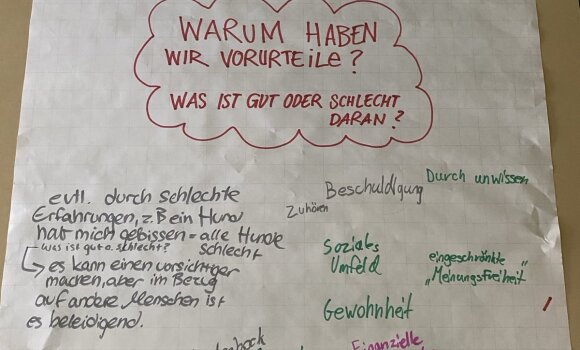 WARUM HABEN
WIR VORURTEILE?
WAS IST GUT ODER SCHLECHT
DARAN?
evtl. durch schlechte
Erfahrungen, z.B ein Hund
hat mich gebissen = alle Hunde
schlecht
Was ist gut o. schlecht?
es kann einen vorsichtiger
machen, aber im Bezug
auf andere Menschen ist
es beleidigend.
Zuhören
Beschuldigung
Durch unwissen
Soziales
Umfeld
eingeschränkte "
"Meinungsfreiheit
Gewohnheit
Finanzielle